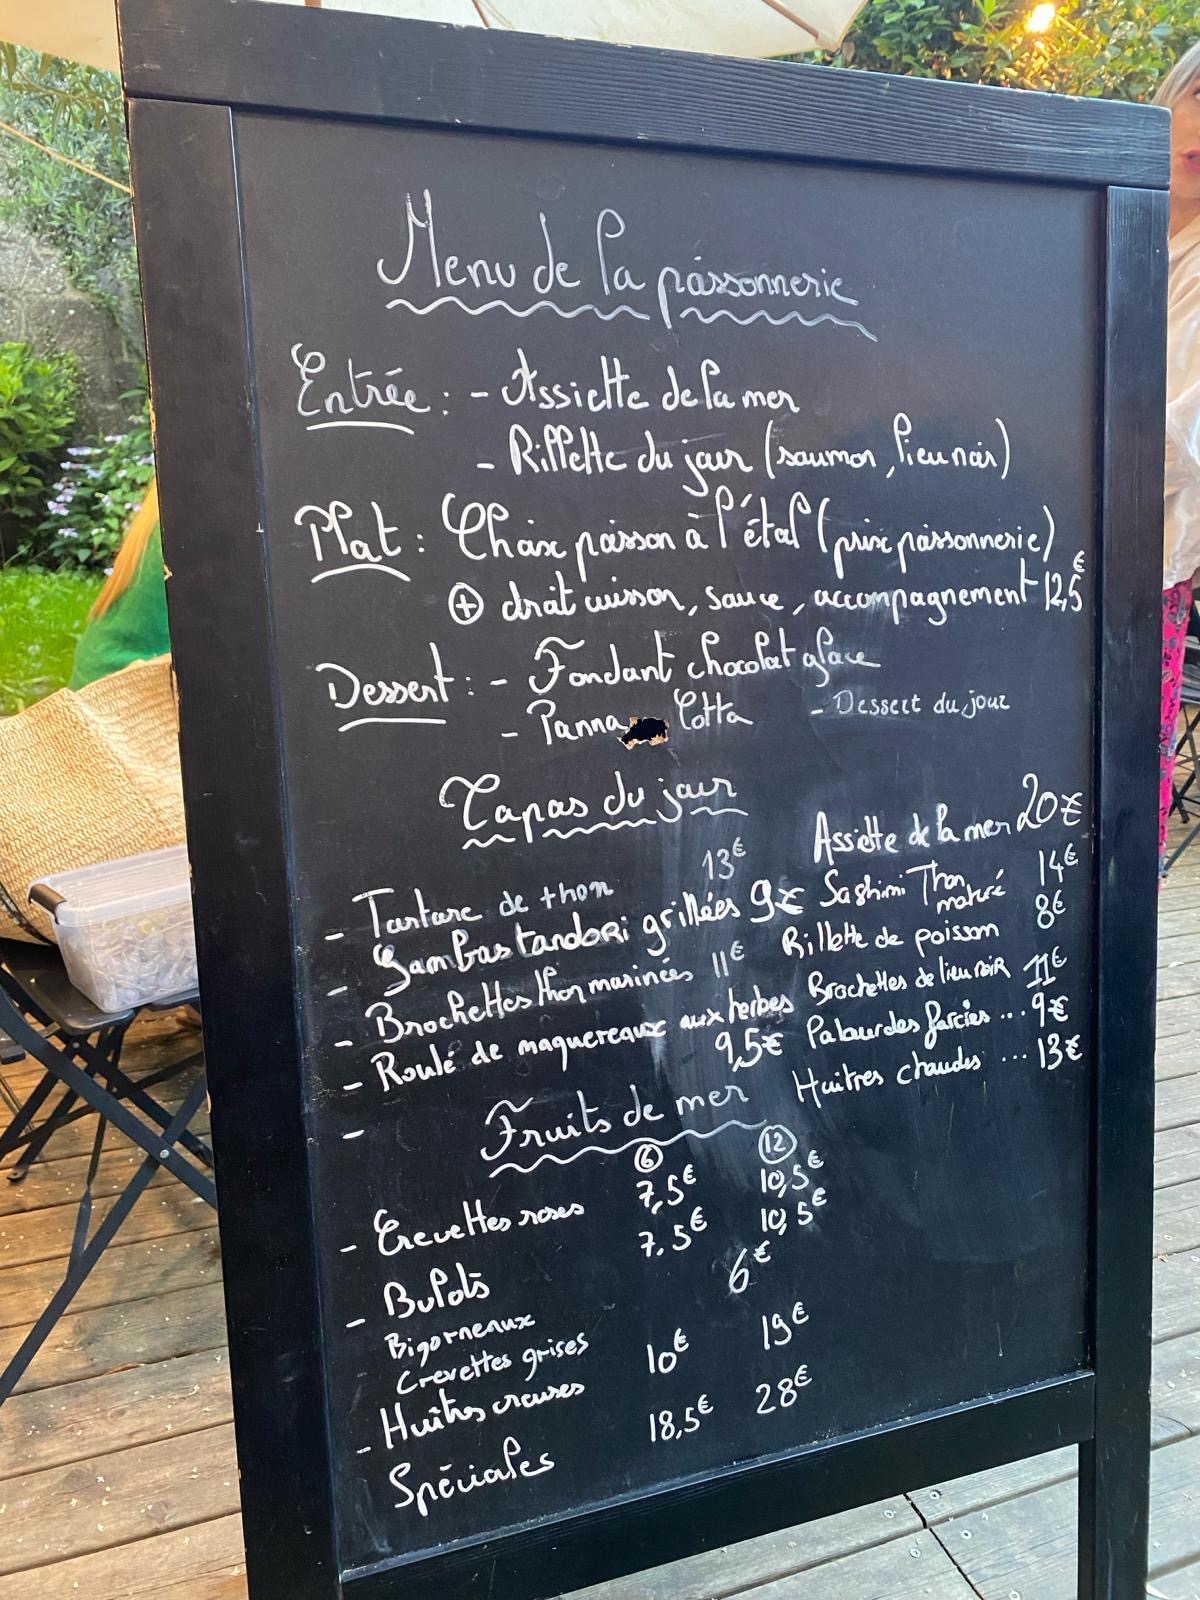 Menu de la poissonnerie
Entrée : - Assiette de la mer
- Rillette du jour (saumon, lieu noir)
Plat : Choix poisson à l'étal (prix poissonnerie)
+ droit cuisson, sauce, accompagnement 12,5€
Dessert : - Fondant chocolat glace
- Panna Cotta - Dessert du jour
Tapas du jour
- Tartare de thon 13€
- Gambas tandori grillées 9€
- Brochettes thon marinées 11€
- Roulé de maquereaux aux herbes 9,5€
-
Assiette de la mer 20€
Sashimi Thon maturé 14€
Rillette de poisson 8€
Brochettes de lieu noir 11€
Palourdes farcies ... 9€
Huitres chaudes ... 13€
Fruits de mer
6 12
- Crevettes roses 7,5€ 10,5€
- Bulots 7,5€ 10,5€
Bigorneaux 6€
Crevettes grises
- Huîtres creuses 10€ 19€
Spéciales 18,5€ 28€